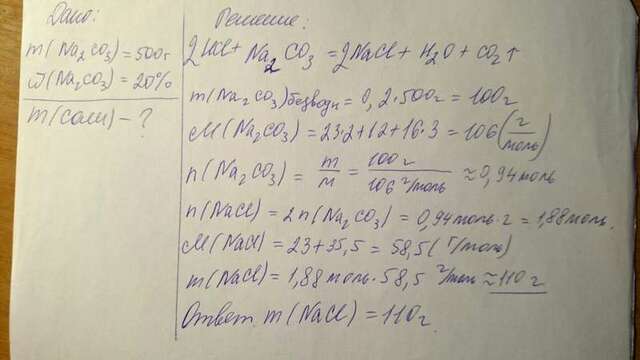 Дано:
m(Na₂CO₃) = 500г
ω(Na₂CO₃) = 20%
m(соли) - ?
Решение:
2HCl + Na₂CO₃ = 2NaCl + H₂O + CO₂↑
m(Na₂CO₃)безводн = 0,2·500г = 100г
M(Na₂CO₃) = 23·2+12+16·3 = 106(г/моль)
n(Na₂CO₃) = m/M = 100г/106 г/моль ≈ 0,94моль
n(NaCl) = 2n(Na₂CO₃) = 0,94моль·2 = 1,88моль.
M(NaCl) = 23+35,5 = 58,5(г/моль)
m(NaCl) = 1,88моль·58,5 г/моль ≈ 110г
Ответ: m(NaCl) = 110г.